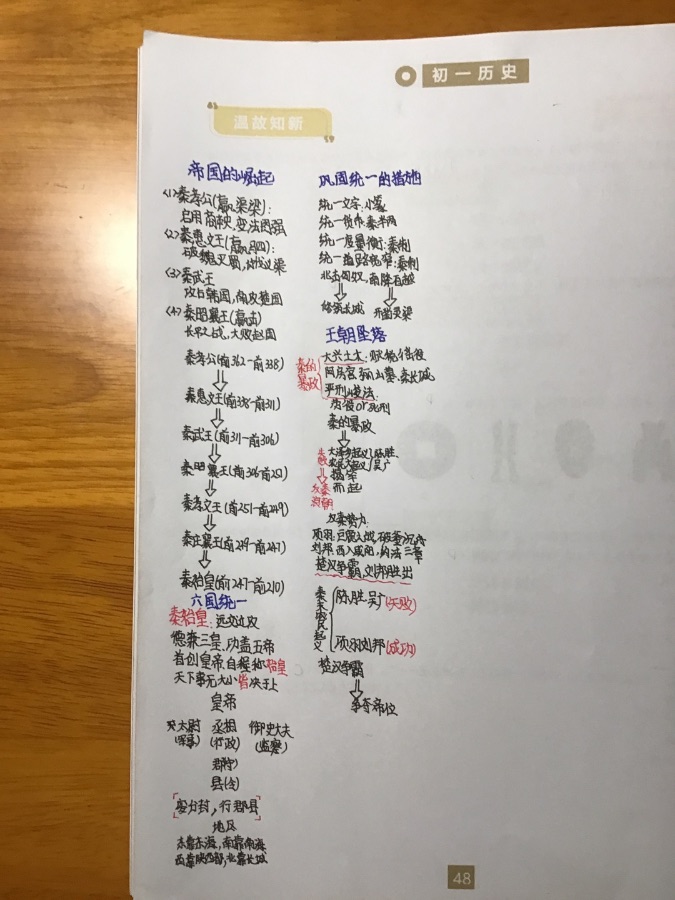 初一历史
温故知新
帝国的崛起
<1>秦孝公(嬴渠梁):
启用商鞅,变法图强
<2>秦惠文王(嬴驷):
破魏灭蜀,伐义渠
<3>秦武王
攻占韩国,南攻楚国
<4>秦昭襄王(嬴):
长平之战,大败赵国
秦孝公(前362-前338)
秦惠文王(前338-前311)
秦武王(前311-前306)
秦昭襄王(前306-前251)
秦孝文王(前251-前249)
秦庄襄王(前249-前247)
秦始皇(前247-前210)
六国统一
秦始皇:远交近攻
德兼三皇,功盖五帝
首创皇帝,自称始皇
天下事无大小皆决于上
皇帝
太尉 丞相 御史大夫
(军事) (行政) (监察)
郡(守)
县(令)
[分封,行郡县]
地区
东靠东海,南靠南海
西靠陕西部,北靠长城
巩固统一的措施
统一文字:小篆
统一货币:秦半两
统一度量衡:秦制
统一道路宽窄:秦制
北击匈奴,南降百越
修筑长城 开凿灵渠
王朝坠落
秦的暴政
大兴土木:赋税徭役
阿房宫,骊山墓,秦长城
严刑峻法:
劳役or死刑
秦的暴政
大泽乡起义 陈胜
农民大起义 吴广
失败
揭竿
而起
反秦浪潮
反秦势力:
项羽:巨鹿之战,破釜沉舟
刘邦:西入咸阳,约法三章
楚汉争霸,刘邦胜出
秦末农民起义
陈胜吴广(失败)
项羽刘邦(成功)
楚汉争霸
争夺帝位
48